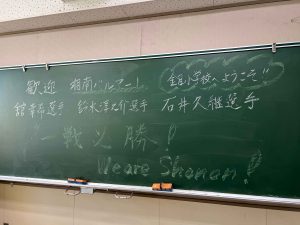 歓迎 湘南ベルマーレ 金目小学校へようこそ
舘幸希選手 鈴木淳之介選手 石井久継選手
"一戦必勝!
We are Shonan!